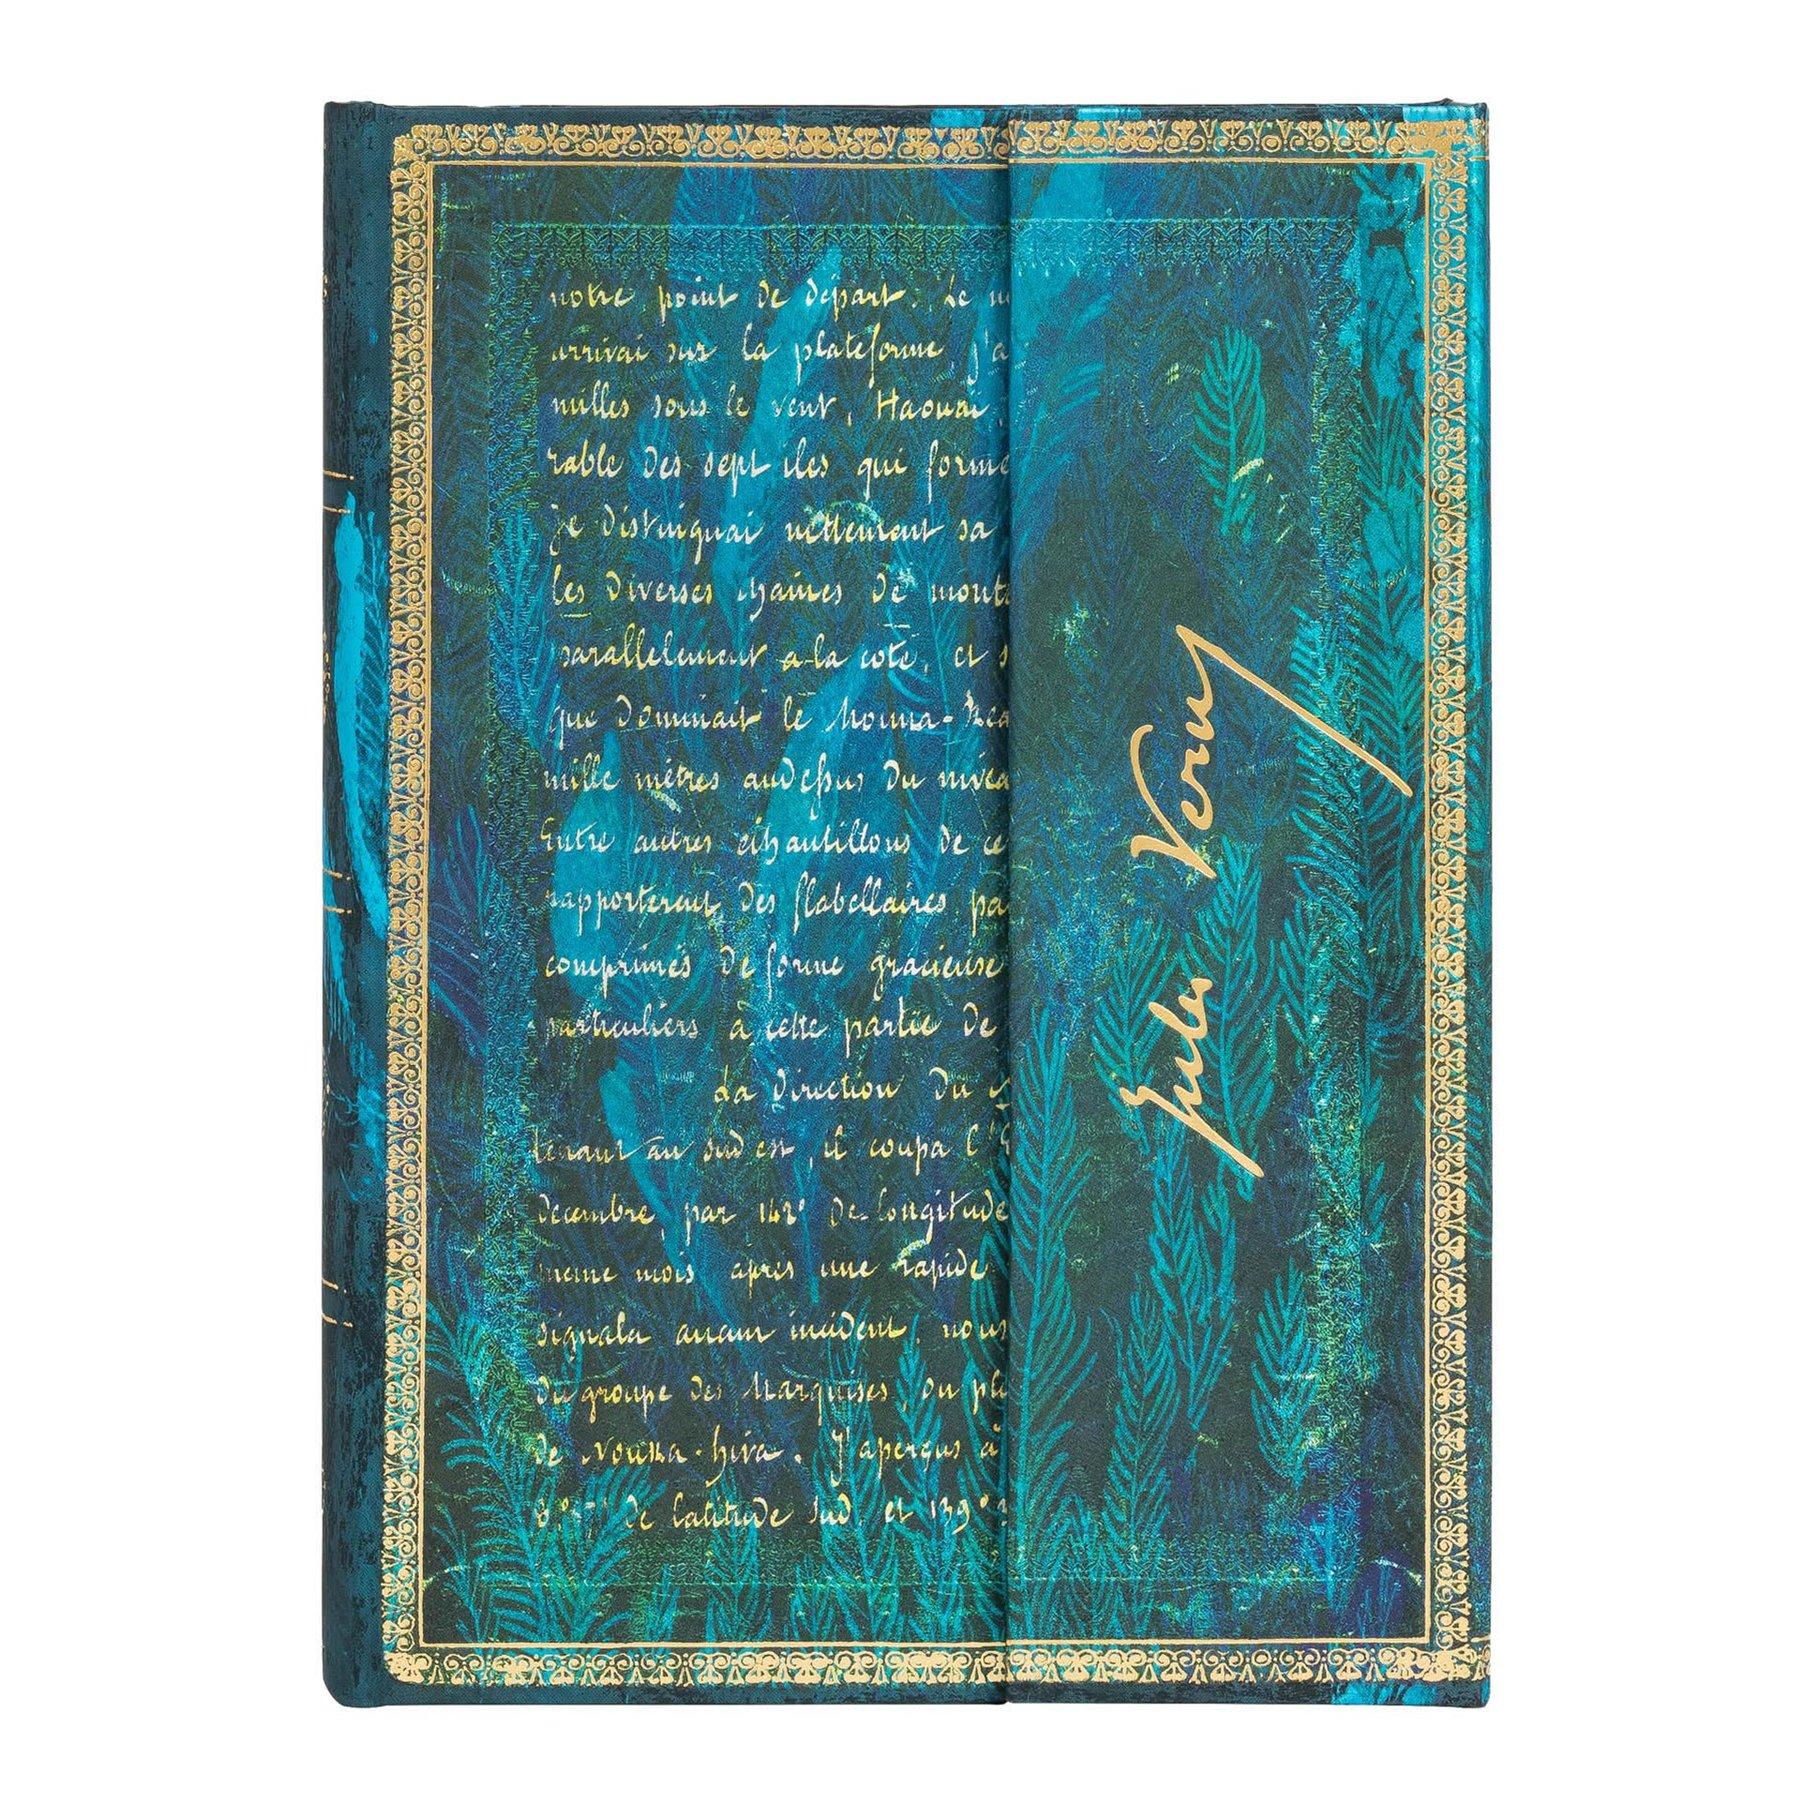 notre point de départ. Le
arrivai sur la plateforme j'a
milles sous le vent, Haouaï,
rable des sept iles qui forme
Je distinguai nettement sa
les diverses chaines de mont
parallelement a la cote, et s
que dominait le Mouna-Rea
mille mètres audessus du nivea
Entre autres échantillons de ce
rapporterent des flabellaires pa
comprimés de forme gracieuse
particuliers a cette partie de
La direction du
tenant au sud est, il coupa l'
decembre par 142° de longitude
meme mois apres une rapide
signala aucun incident, nous
du groupe des Marquises, ou pl
de Nouka-hiva. J'aperçus à
8° 57' de latitude sud, et 139°
Jules Verne